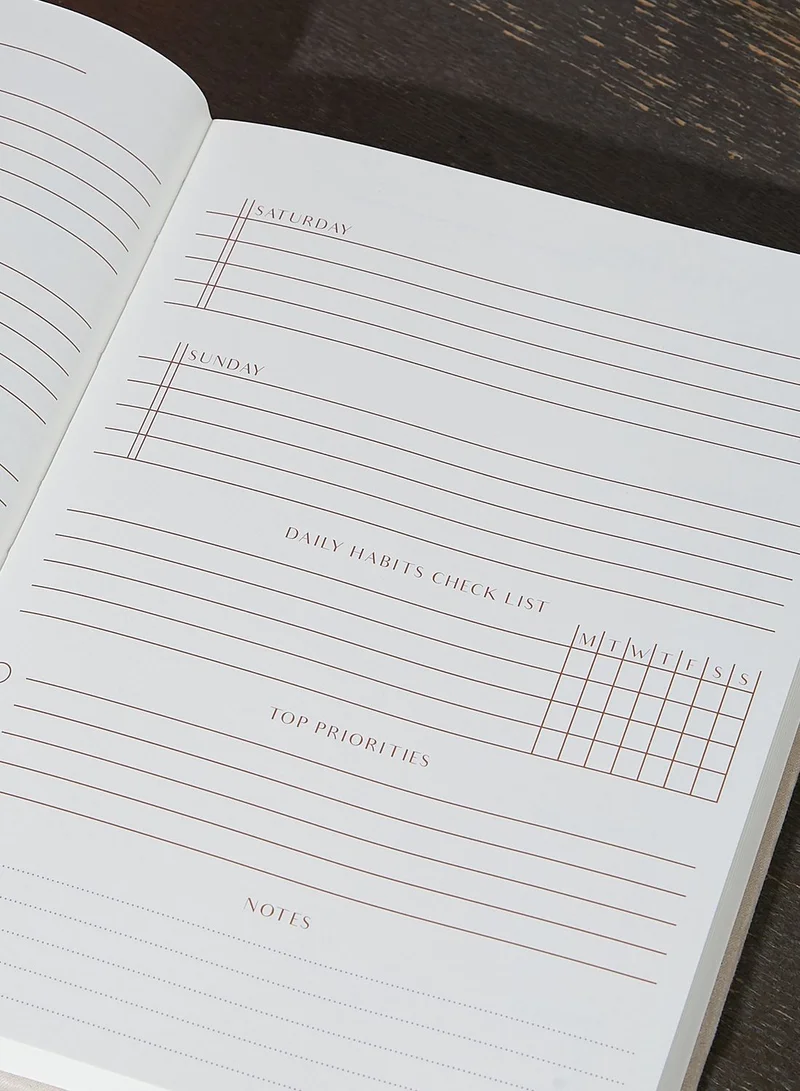 SATURDAY
SUNDAY
DAILY HABITS CHECK LIST
M T W T F S S
TOP PRIORITIES
NOTES